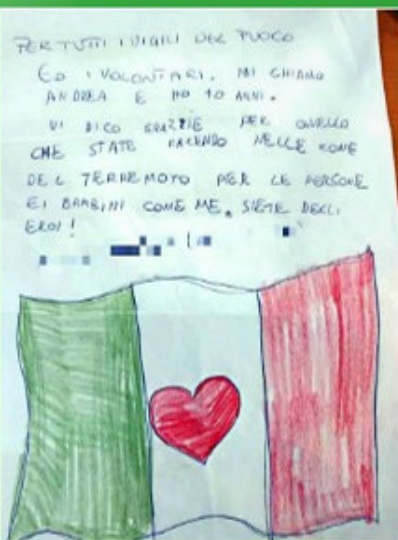 PER TUTTI I VIGILI DEL FUOCO
ED I VOLONTARI. MI CHIAMO
ANDREA E HO 10 ANNI.
VI DICO GRAZZIE PER QUELLO
CHE STATE FACENDO NELLE ZONE
DEL TERREMOTO PER LE PERSONE
E I BAMBINI COME ME. SIETE DEGLI
EROI!